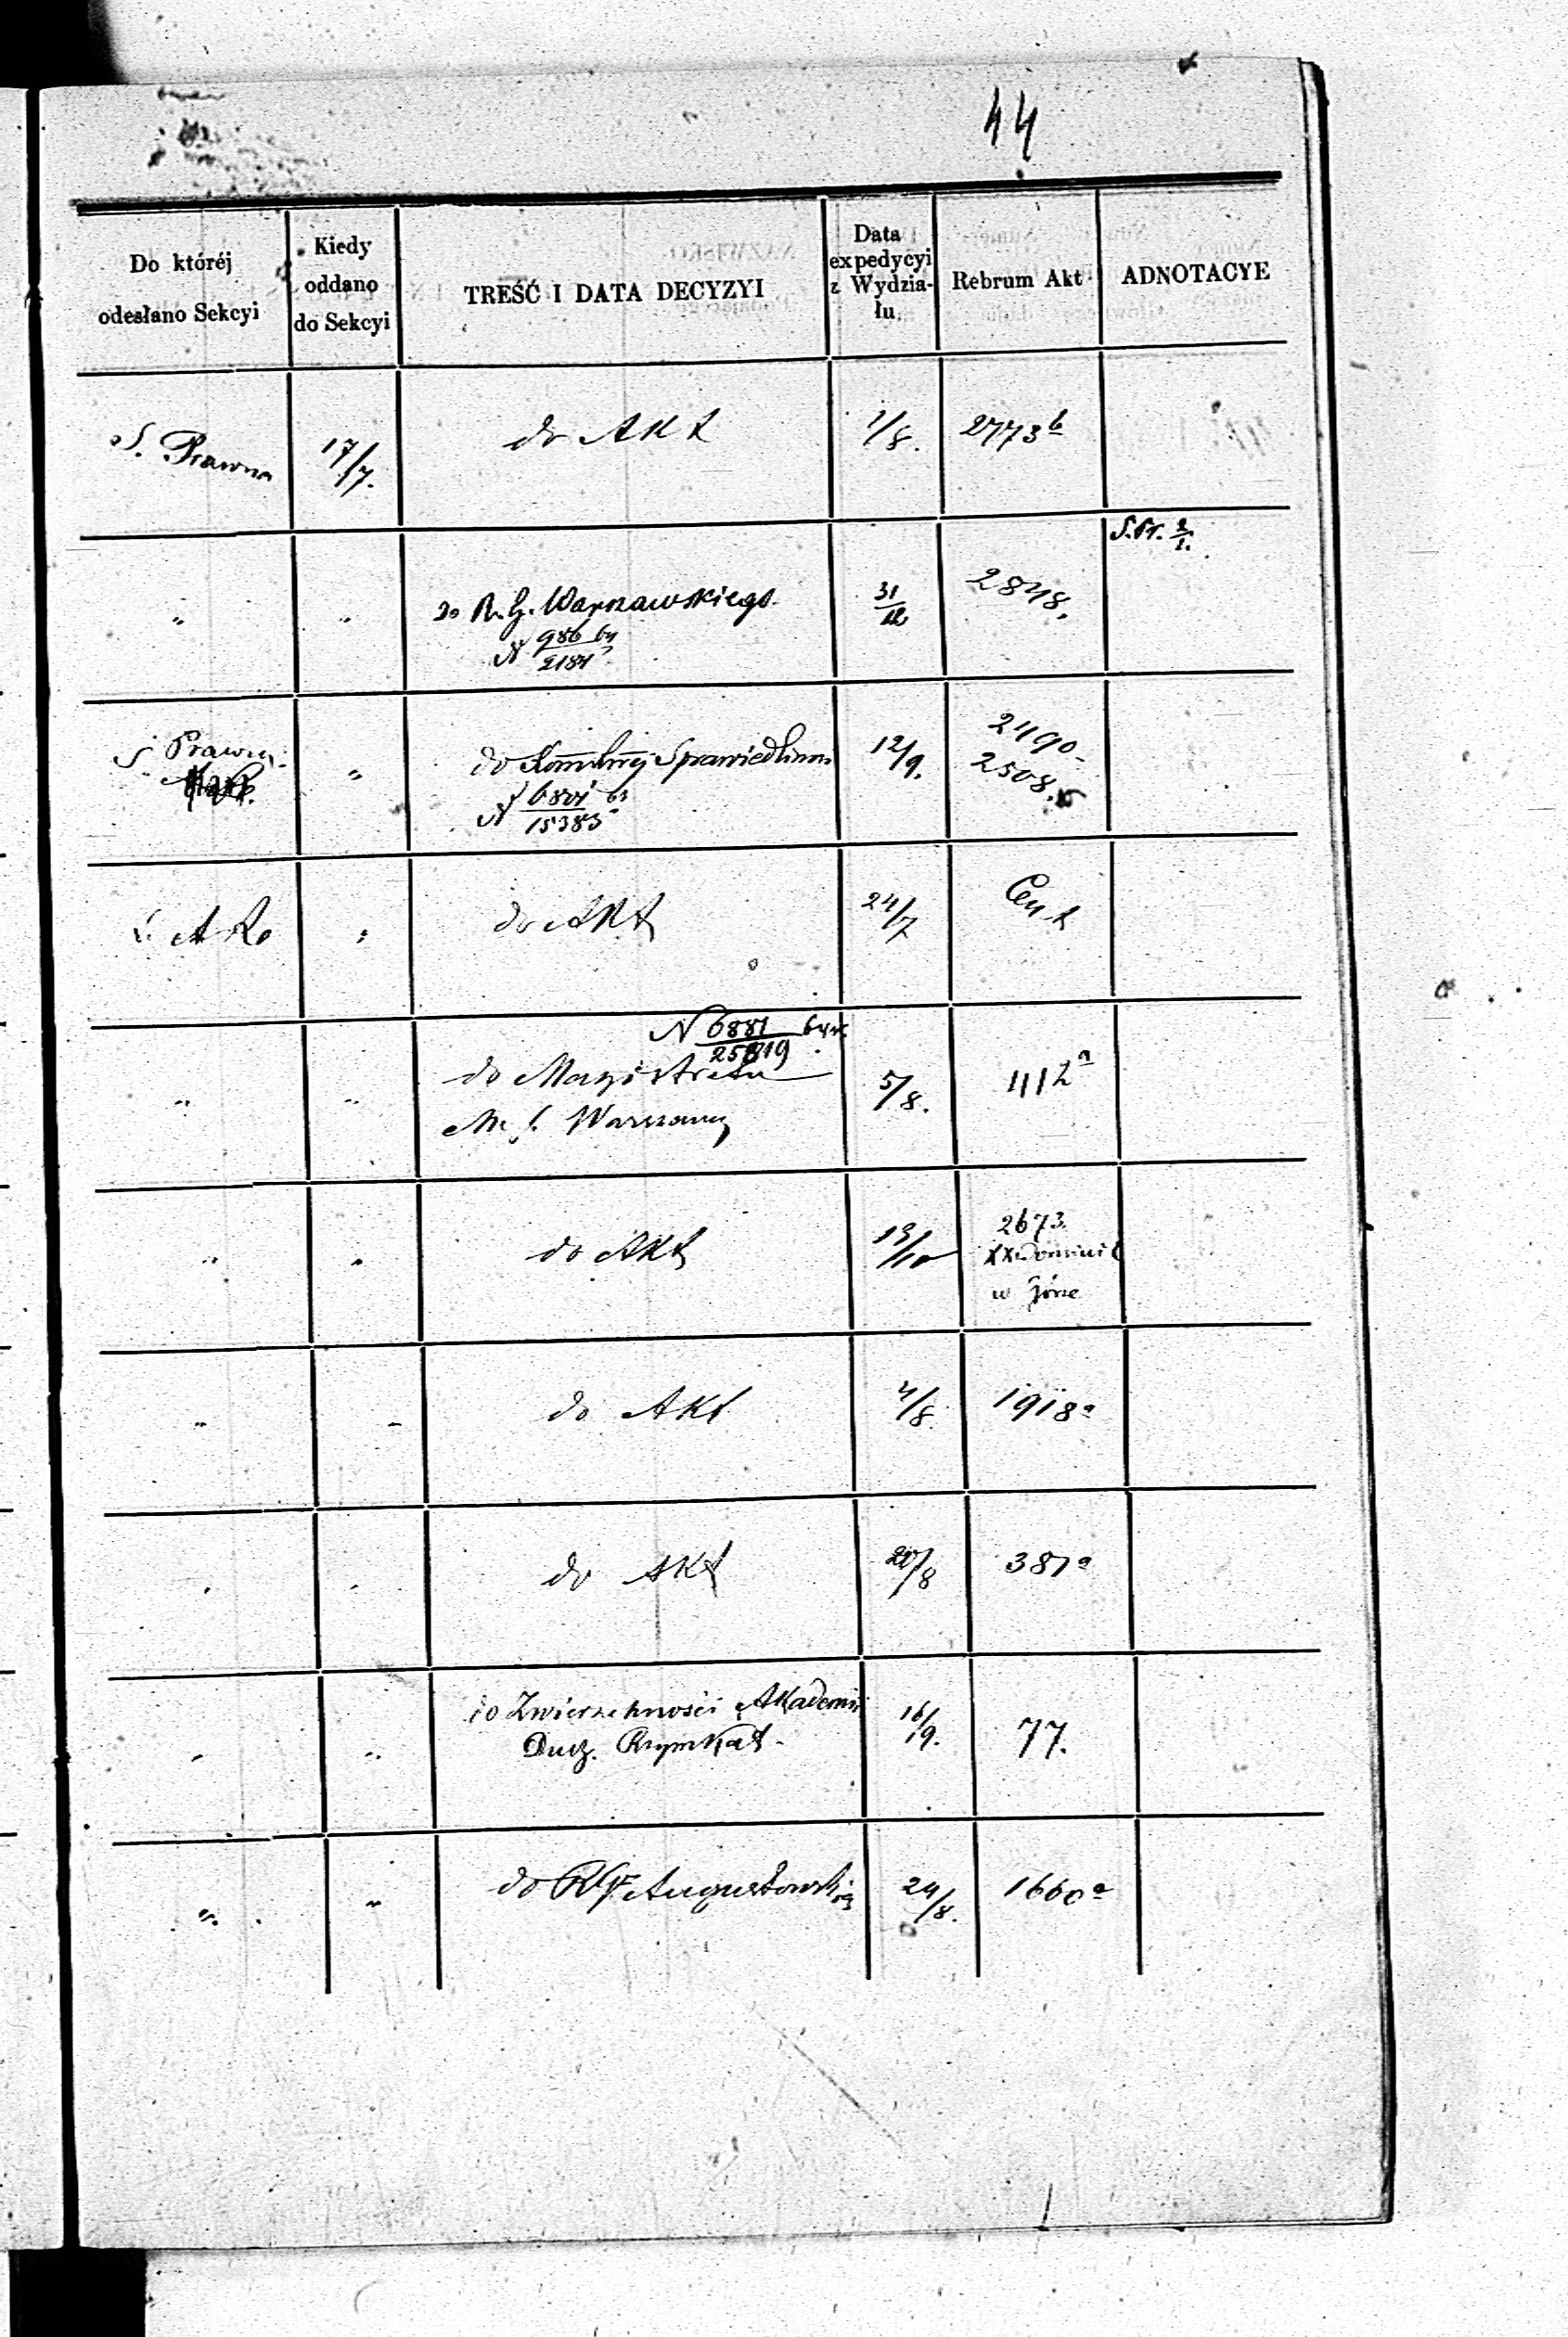 44
Do któréj
odesłano Sekcyi
Kiedy
oddano
do Sekcyi
TREŚĆ I DATA DECYZYI
Data
expedycyi
z Wydzia-
łu
Rebrum Akt
ADNOTACYE
S. Prawna
17/7.
do Akt
1/8.
2773 b
"
"
do R. G. Warszawskiego
N 986/2184
31/12
2848.
S. Pr. 2/1.
S Prawn.
"
do Sprawiedliwoś
N 6801/15383
12/9.
2490
2508.
do Akt
24/7
"
"
N 6881/25819
do Magistratu
M. S. Warszawy
5/8.
412 a
"
"
do Akt
13/10
2673
XX Dominik
w Górze
"
"
do Akt
4/8
1918 a
"
"
do Akt
20/8
381 a
"
"
do Zwierzchności Akademii
Duch. Rzym Kat.
16/9.
77.
"
"
do RG Augustowski
24/8.
1660 a